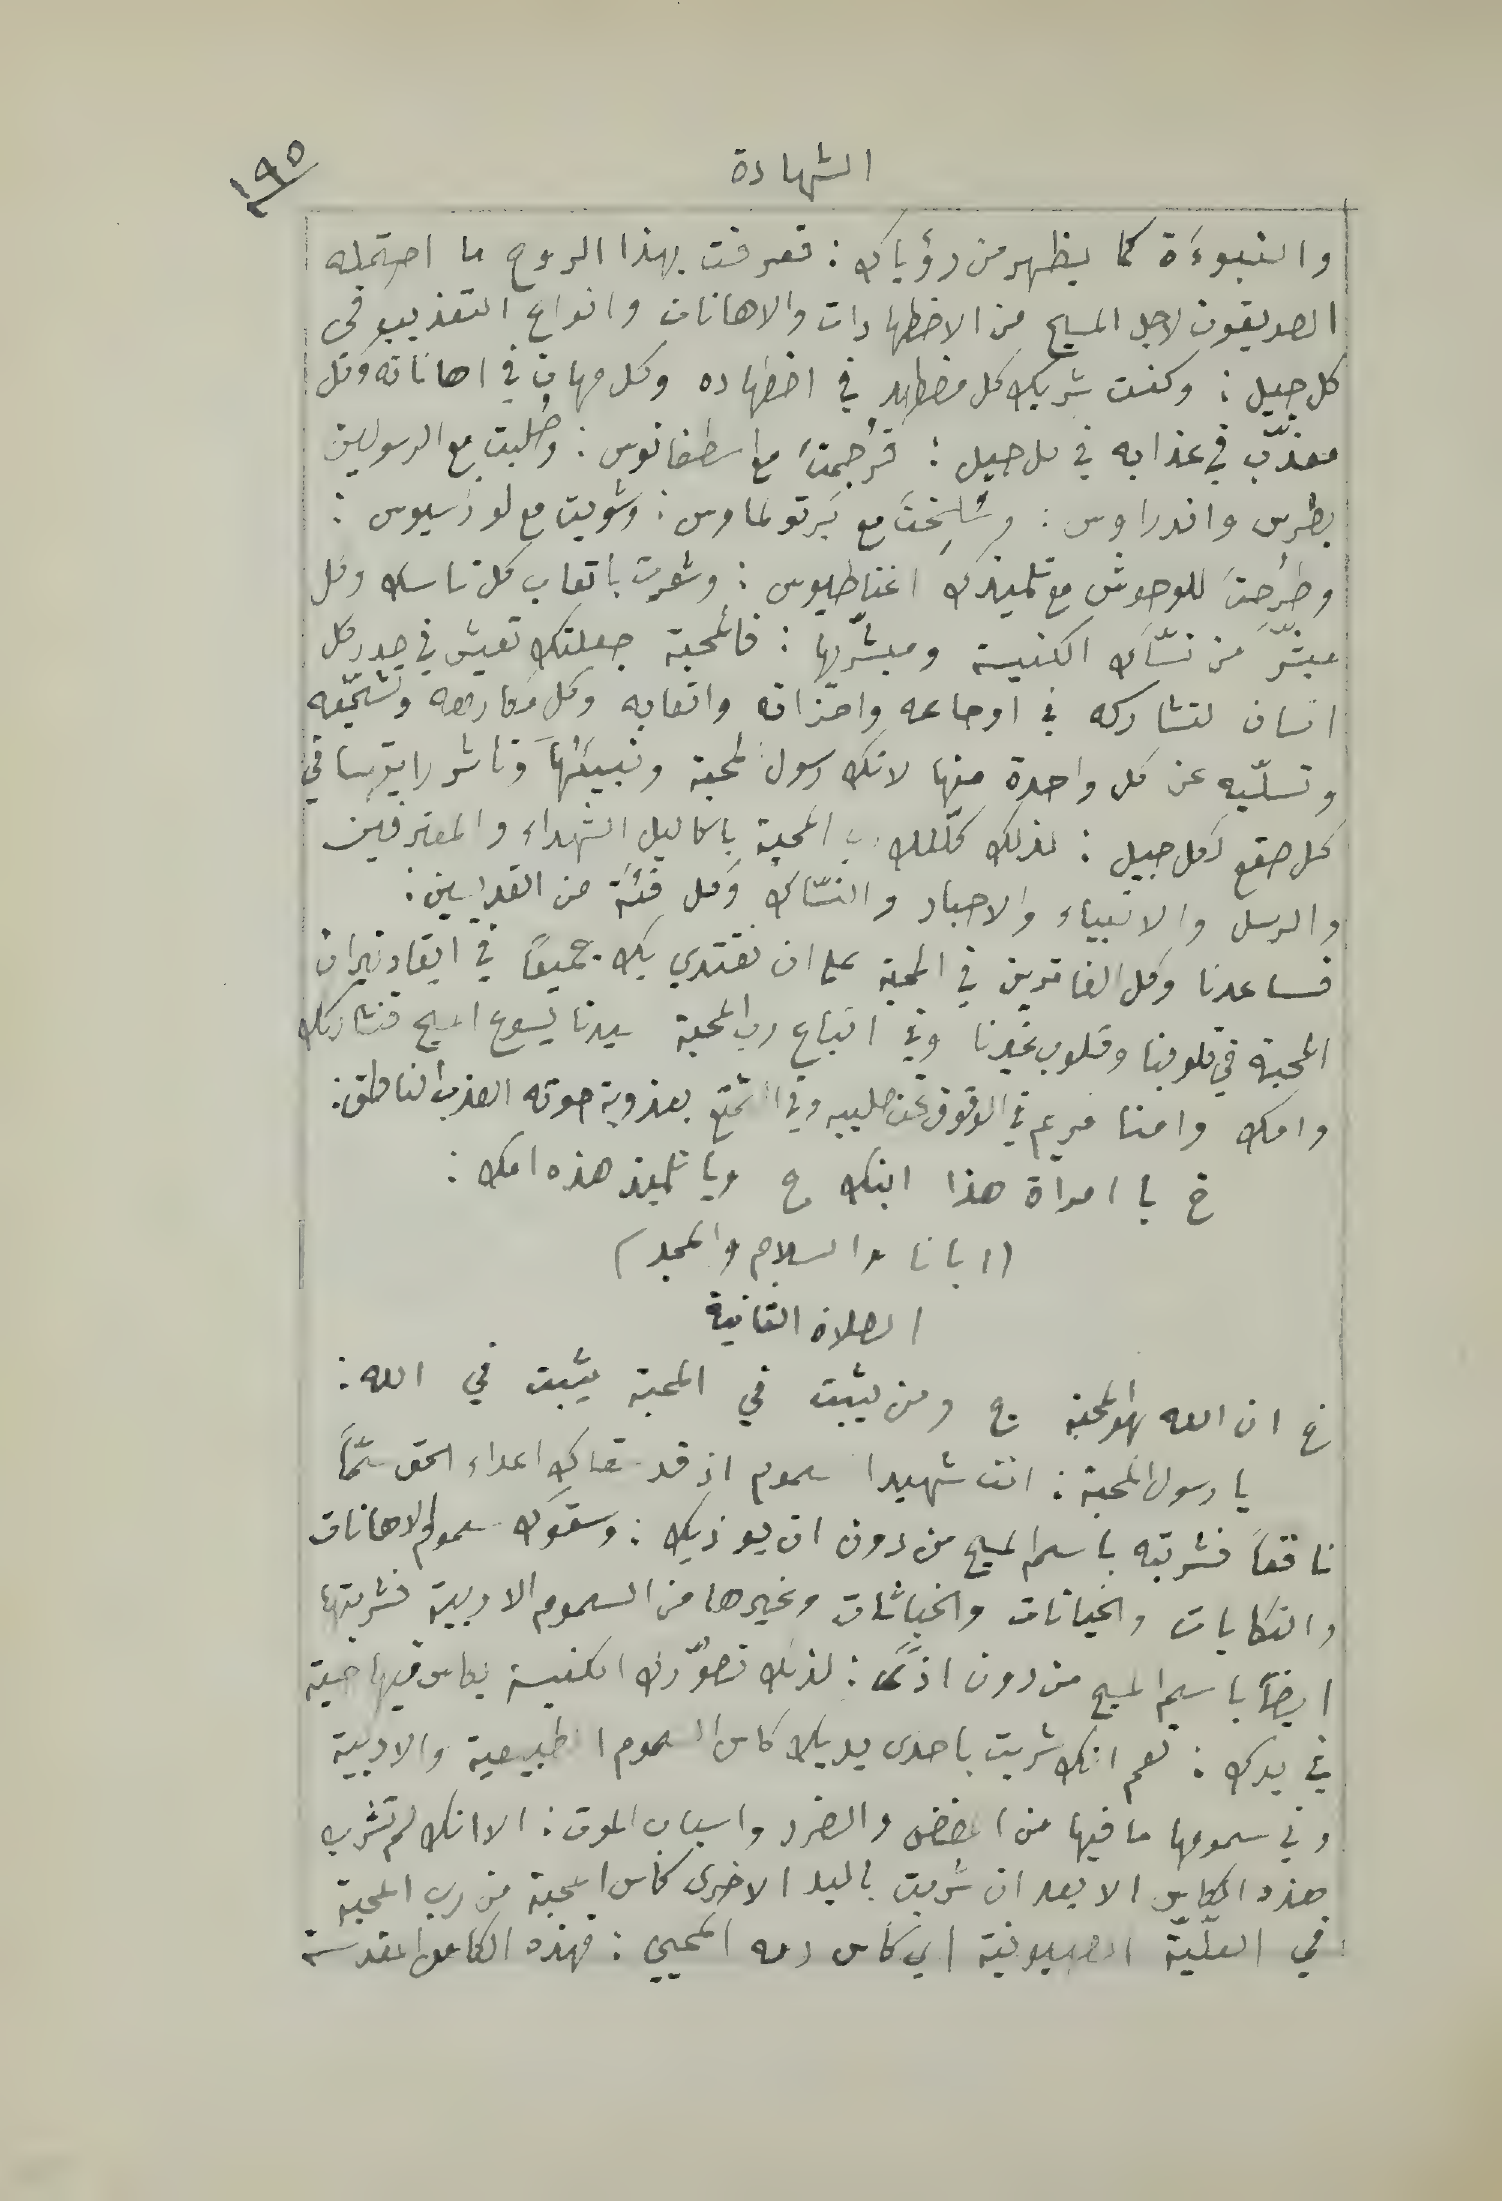 الشهادة
١٩٥
والنبوءَة كما يظهر من رؤياك : فعرفت بهذا الروح ما احتمله
الصديقون لاجل المسيح من الاضطهادات والاهانات وانواع التعذيب في
كل جيل : وكنت شريك كل مضطهد في اضطهاده وكل مهان في اهاناته وكل
معذّب في عذابه في كل جيل : فرُجمتَ مع اسطفانوس : وصُلبت مع الرسولين
بطرس واندراوس : وسُلِخْتَ مع بَرتولماوس : وشُويت مع لورنسيوس :
وطُرِحتَ للوحوش مع تلميذك اغناطيوس : وشعرت باتعاب كل ناسك وكل
مبشّر من نسّاك الكنيسة ومبشّريها : فالمحبة جعلتك تعيش في صدر كل
انسان لتشاركه في اوجاعه واحزانه واتعابه وكل مكارهه وتشجّعه
وتسلّيه عن كل واحدة منها لانك رسول المحبة ونبيّها وناشر رايتها في
كل صقع وكل جيل : لذلك كلّلك رب المحبة باكاليل الشهداء والمعترفين
والرسل والانبياء والاحبار والنسّاك وكل فئة من القديسين :
فساعدنا وكل الفاترين في المحبة على ان نقتدي بك جميعًا في ايقاد نيران
المحبة في قلوبنا وقلوب غيرنا وفي اتباع رب المحبة سيدنا يسوع المسيح فنشاركك
وامك وامنا مريم في الوقوف تحت صليبه وفي التمتع بعذوبة صوته العذب الناطق :
خ يا امرأة هذا ابنك ج ويا تلميذ هذه امك :
(ابانا والسلام والمجد)
الصلاة الثانية
خ ان الله لهو المحبة ج ومن يثبت في المحبة يثبت في الله :
يا رسول المحبة : انت شهيد السموم اذ قد سقاك اعداء الحق سمًّا
ناقعًا فشربته باسم المسيح من دون ان يوذيك : وسقوك سموم الاهانات
والنكايات والخيانات والخباثات وغيرها من السموم الادبية فشربتها
ايضًا باسم المسيح من دون اذًى : لذلك تصوّرك الكنيسة بكاس فيها حية
في يدك : نعم انك شربت باحدى يديك كاس السموم الطبيعية والادبية
وفي سمومها ما فيها من المضض والضرر واسباب الموت : الا انك لم تشرب
هذه الكاس الا بعد ان شربت باليد الاخرى كاس المحبة من رب المحبة
في العلّيّة الصهيونية اي كاس دمه المحيي : فهذه الكاس المقدسة